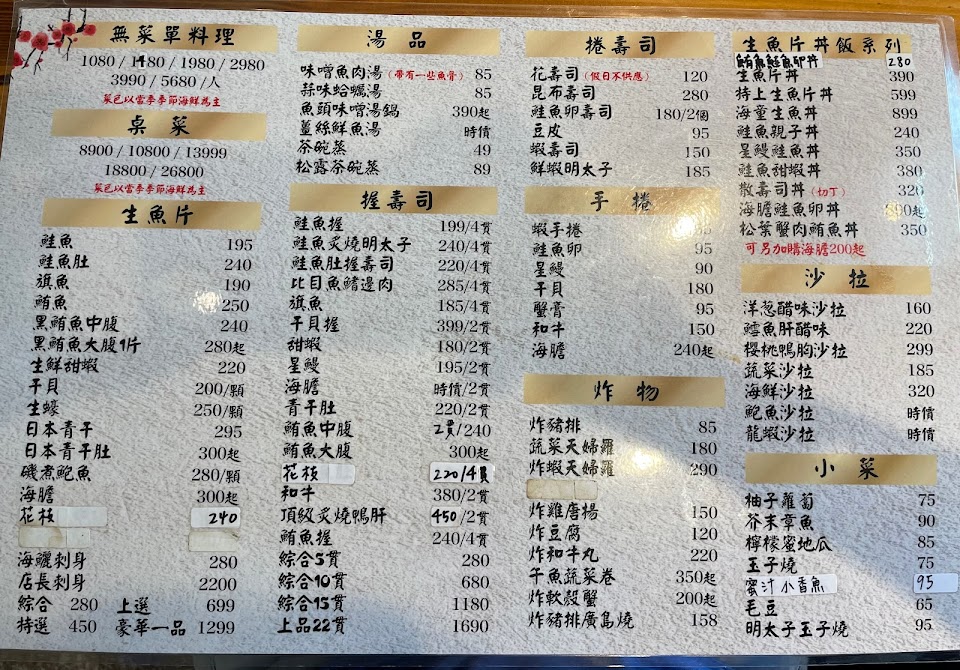 無菜單料理
1080 / 1480 / 1980 / 2980
3990 / 5680 /人
菜色以當季季節海鮮為主
桌菜
8900 / 10800 / 13999
18800 / 26800
菜色以當季季節海鮮為主
生魚片
鮭魚 195
鮭魚肚 240
旗魚 190
鮪魚 250
黑鮪魚中腹 240
黑鮪魚大腹1片 280起
生鮮甜蝦 220
干貝 200/顆
生蠔 250/顆
日本青干 295
日本青干肚 300起
磯煮鮑魚 280/顆
海膽 300起
花枝 240
海鱺刺身 280
店長刺身 2200
綜合 280 上選 699
特選 450 豪華一品 1299
湯品
味噌魚肉湯(帶有一些魚骨) 85
蒜味蛤蠣湯 85
魚頭味噌湯鍋 390起
薑絲鮮魚湯 時價
茶碗蒸 49
松露茶碗蒸 89
握壽司
鮭魚握 199/4貫
鮭魚炙燒明太子 240/4貫
鮭魚肚握壽司 220/4貫
比目魚鰭邊肉 285/4貫
旗魚 185/4貫
干貝握 399/2貫
甜蝦 180/2貫
星鰻 195/2貫
海膽 時價/2貫
青干肚 220/2貫
鮪魚中腹 2貫/240
鮪魚大腹 300起
花枝 220/4貫
和牛 380/2貫
頂級炙燒鴨肝 450/2貫
鮪魚握 240/4貫
綜合5貫 280
綜合10貫 680
綜合15貫 1180
上品22貫 1690
捲壽司
花壽司(假日不供應) 120
昆布壽司 280
鮭魚卵壽司 180/2個
豆皮 95
蝦壽司 150
鮮蝦明太子 185
手捲
蝦手捲
鮭魚卵 95
星鰻 90
干貝 180
蟹膏 95
和牛 150
海膽 240起
炸物
炸豬排 85
蔬菜天婦羅 180
炸蝦天婦羅 290
炸雞唐揚 150
炸豆腐 120
炸和牛丸 220
干魚蔬菜卷 350起
炸軟殼蟹 200起
炸豬排廣島燒 158
生魚片丼飯系列
鮪魚鮭魚卵丼 280
生魚片丼 390
特上生魚片丼 599
海童生魚丼 899
鮭魚親子丼 240
星鰻鮭魚丼 350
鮭魚甜蝦丼 380
散壽司丼(切丁) 320
海膽鮭魚卵丼 起
松葉蟹肉鮪魚丼 350
可另加購海膽200起
沙拉
洋蔥醋味沙拉 160
鱈魚肝醋味 220
櫻桃鴨胸沙拉 299
蔬菜沙拉 185
海鮮沙拉 320
鮑魚沙拉 時價
龍蝦沙拉 時價
小菜
柚子蘿蔔 75
芥末章魚 90
檸檬蜜地瓜 85
玉子燒 75
蜜汁小香魚 95
毛豆 65
明太子玉子燒 95